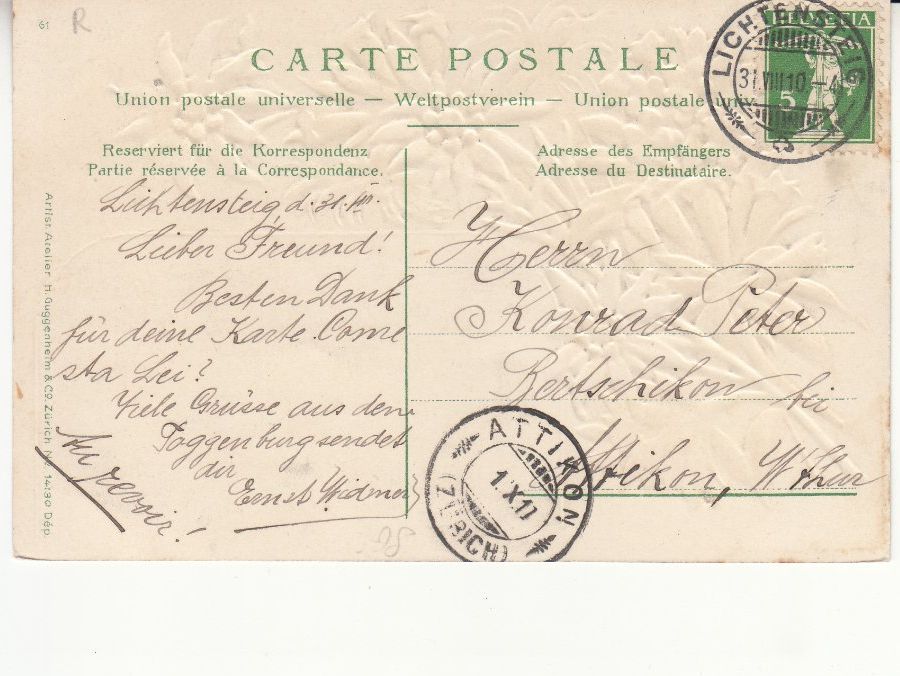 61
R
CARTE POSTALE
Union postale universelle — Weltpostverein — Union postale univ.
HELVETIA
5
LICHTENSTEIG
31.VIII.10.–4
Reserviert für die Korrespondenz
Partie réservée à la Correspondance.
Adresse des Empfängers
Adresse du Destinataire.
Lichtensteig d. 31. VIII.
Lieber Freund!
Besten Dank
für deine Karte. Come
sta Lei?
Viele Grüsse aus dem
Toggenburg sendet
dir
Ernst Widmer
Au revoir!
Herrn
Konrad Peter
Bertschikon bei
Attikon, W'thur
ATTIKON
(ZÜRICH)
Artist. Atelier H. Guggenheim & Co. Zürich No. 14130 Dép.